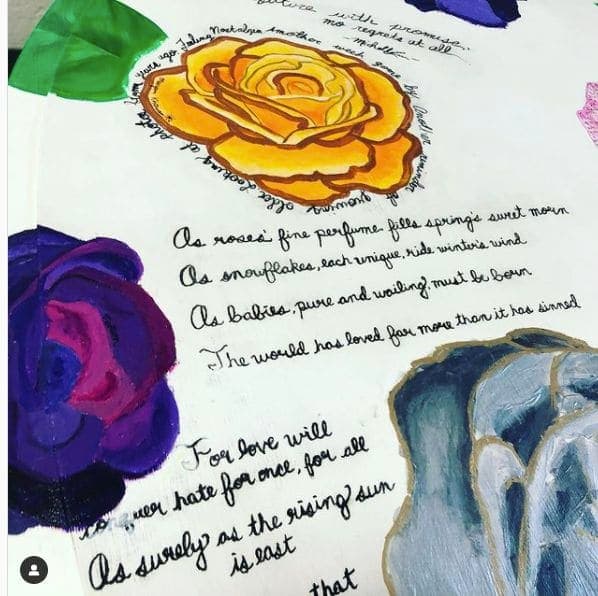 future with promise.
no regrets at all
Michelle
years ago. Feeling Nostalgic Another week gone by Another reminder of growing older Looking at photos from
As roses' fine perfume fills spring's sweet morn
As snowflakes, each unique, ride winter's wind
As babies, pure and wailing, must be born
The world has loved far more than it has sinned
For love will
conquer hate for once, for all
As surely as the rising sun
is east
that